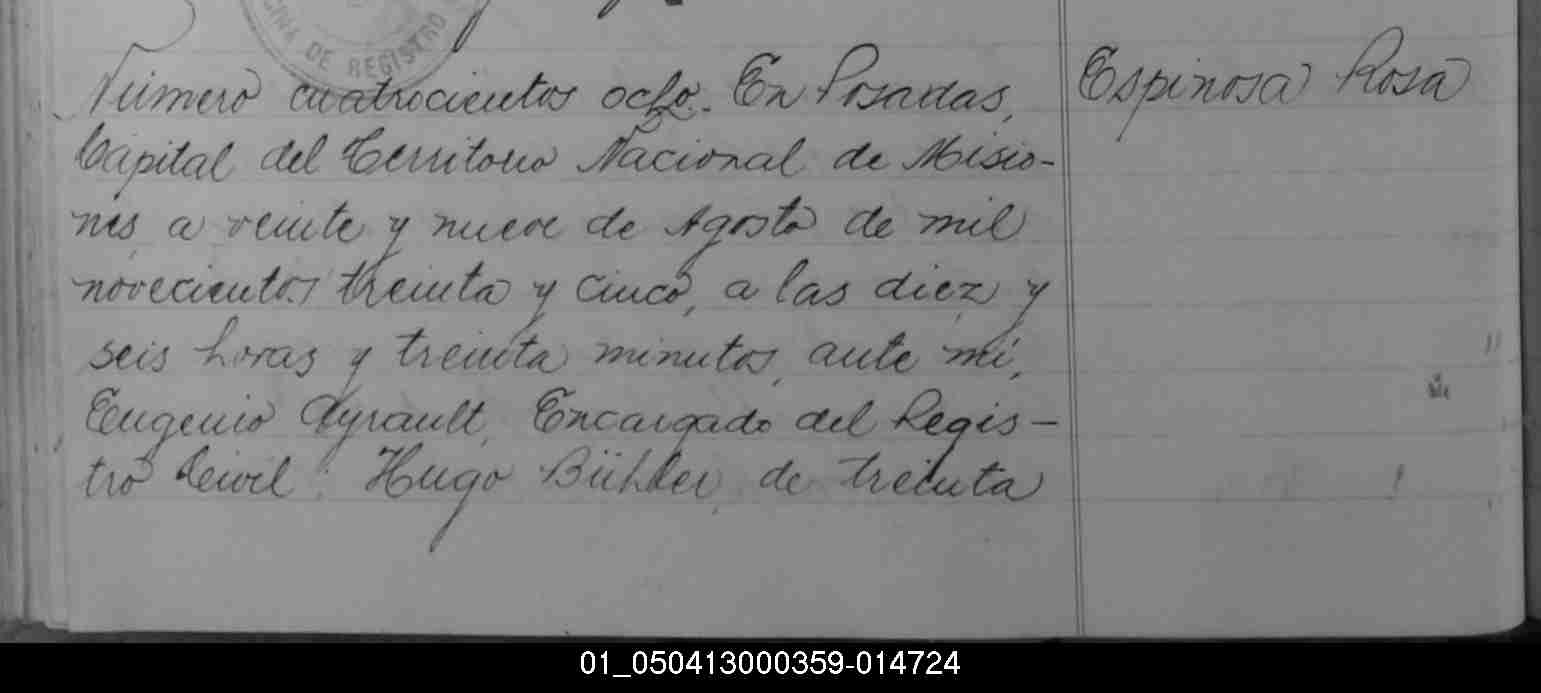 CINA DE REGISTRO
Número cuatrocientos ocho. En Posadas,
Capital del Territorio Nacional de Misio-
nes a veinte y nueve de Agosto de mil
novecientos treinta y cinco, a las diez y
seis horas y treinta minutos, ante mí,
Eugenio Ayrault, Encargado del Regis-
tro Civil: Hugo Bühler, de treinta
Espinosa Rosa
01_050413000359-014724